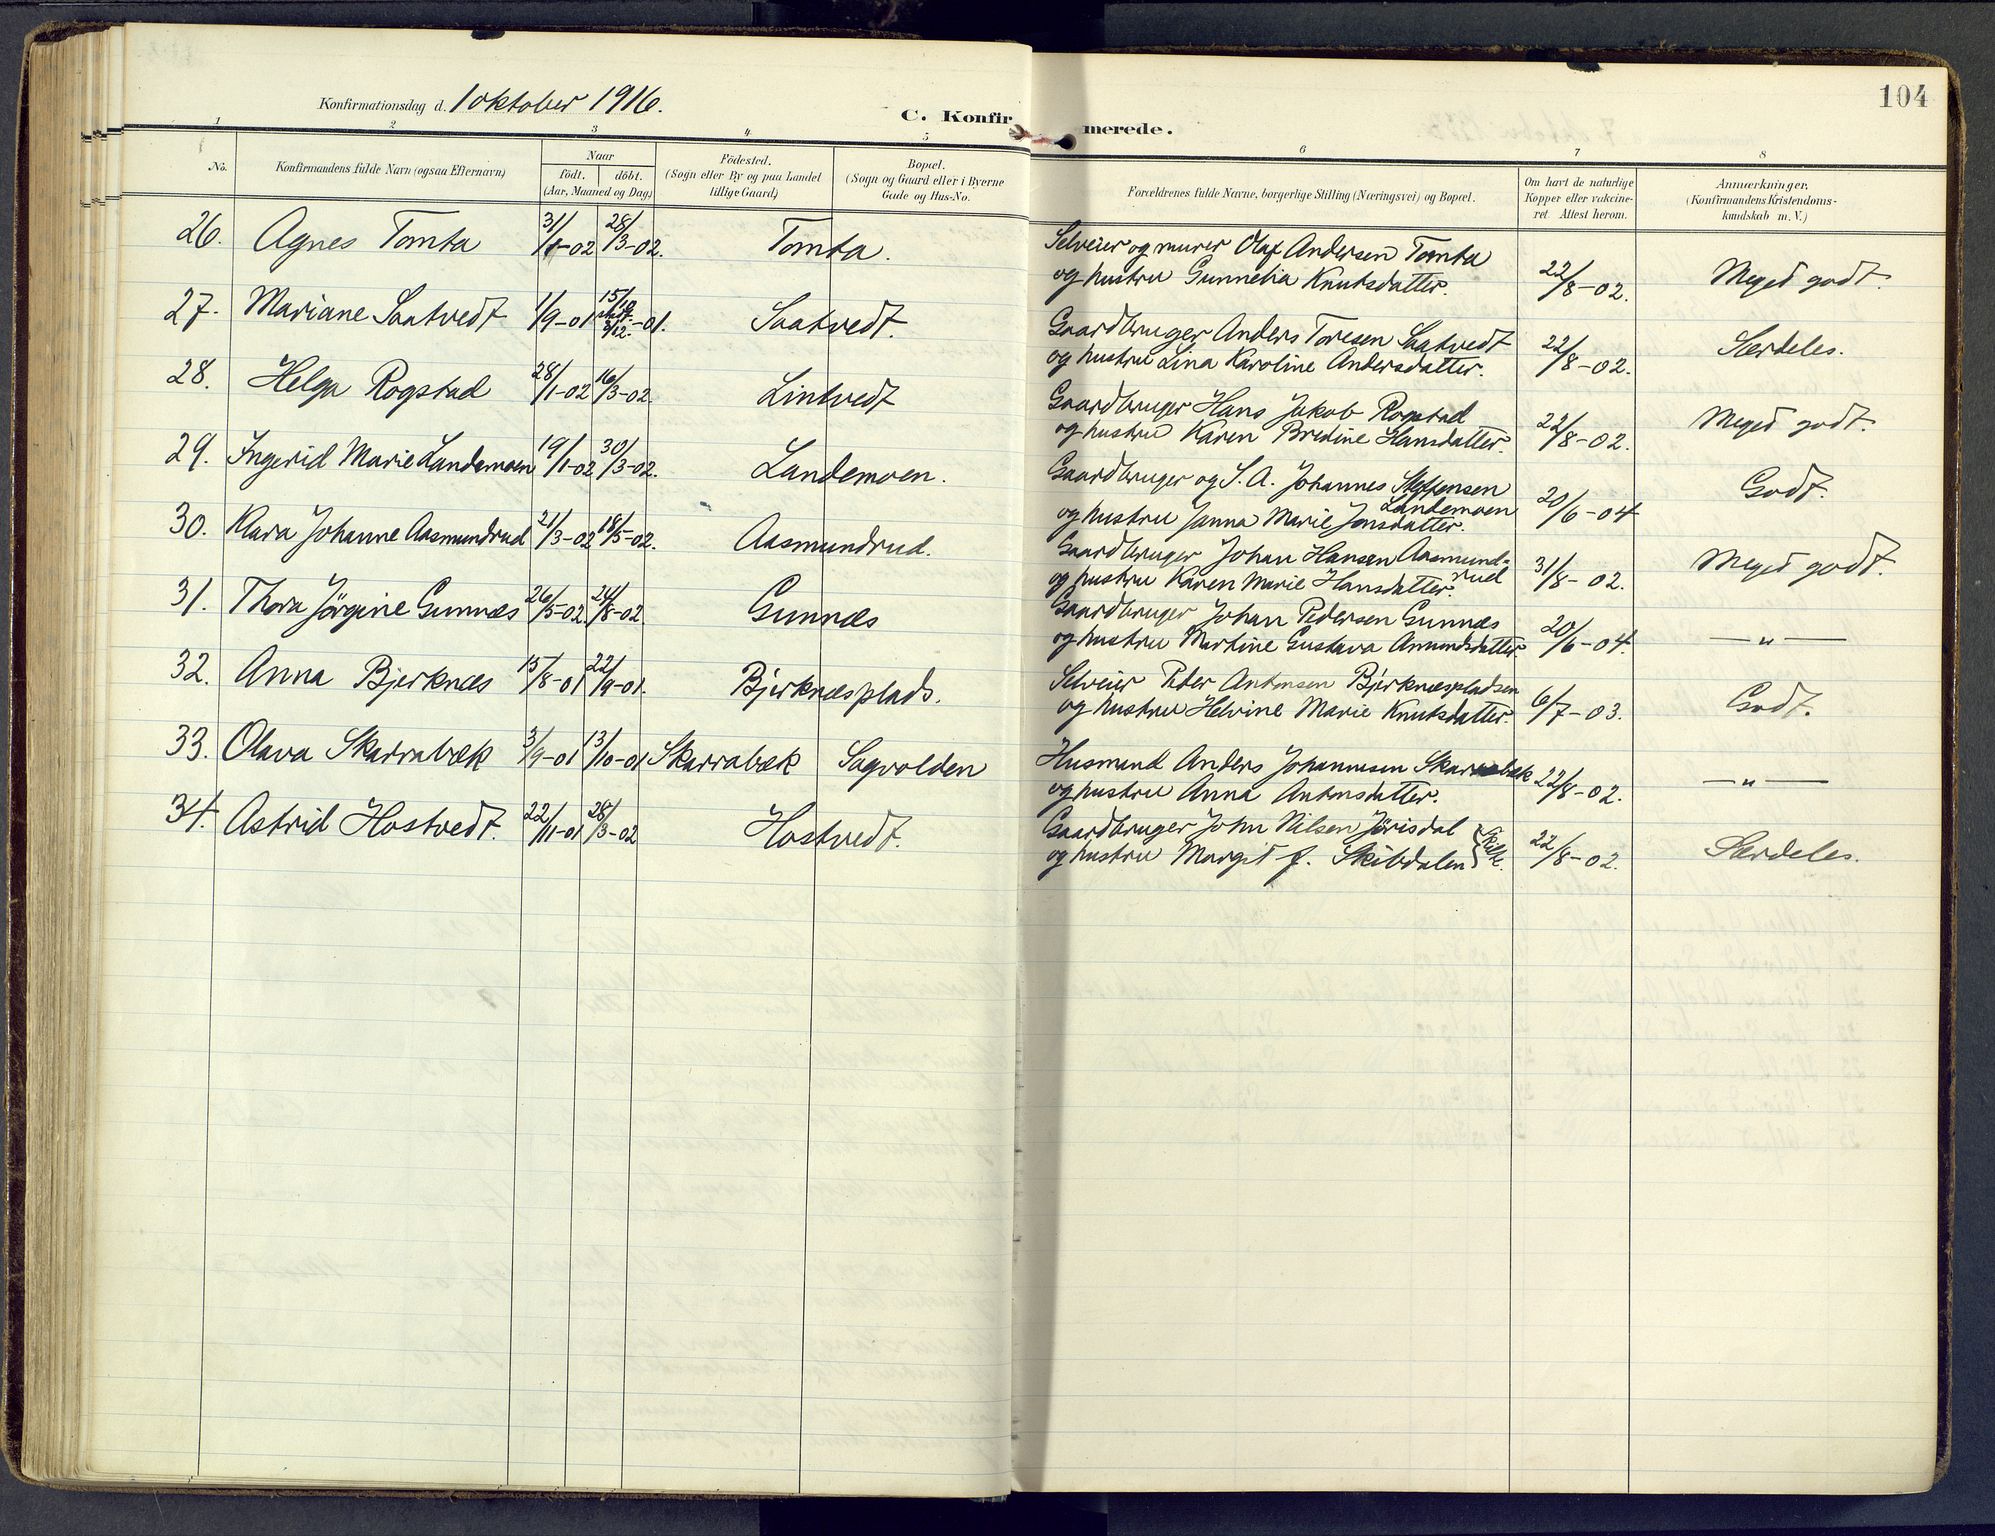 Konfirmationsdag d. 1 oktober 1916.
C. Konfirmerede.
104
1 2 3 4 5 6 7 8
No.
Konfirmandens fulde Navn (ogsaa Efternavn)
Naar
født. døbt.
(Aar, Maaned og Dag)
Fødested.
(Sogn eller By og paa Landet
tillige Gaard)
Bopæl.
(Sogn og Gaard eller i Byerne
Gade og Hus-No.
Forældrenes fulde Navne, borgerlige Stilling (Næringsvei) og Bopæl.
Om havt de naturlige
Kopper eller vaccine-
ret. Attest herom.
Anmærkninger.
(Konfirmandens Kristendoms-
kundskab m. V.)
26. Agnes Tomta 31/1-02 28/3-02. Tomta. Selveier og murer Olaf Andersen Tomta
og hustru Gunnelia Knutsdatter. 22/8-02. Meget godt.
27. Mariane Saatvedt 1/9-01 15/10 stadf. 8/12-01. Saatvedt. Gaardbruger Anders Toresen Saatvedt
og hustru Lina Karoline Andersdatter. 22/8-02. Særdeles.
28. Helga Rogstad 28/1-02 16/3-02. Lintvedt Gaardbruger Hans Jakob Rogstad
og hustru Karen Bredine Hansdatter. 22/8-02. Meget godt.
29. Ingerid Marie Landemoen 19/1-02 30/3-02. Landemoen. Gaardbruger og S. A. Johannes Steffensen
Landemoen
og hustru Janna Marie Jonsdatter. 20/6-04 Godt.
30. Klara Johanne Aasmundrud 21/3-02 18/5-02. Aasmundrud. Gaardbruger Johan Hansen Aasmund-
rud
og hustru Karen Marie Hansdatter. 31/8-02. Meget godt.
31. Thora Jørgine Gunnæs 26/5-02. 24/8-02. Gunnæs Gaardbruger Johan Pedersen Gunnæs
og hustru Martine Gustava Amundsdatter. 20/6-04. —„—
32. Anna Bjerknæs 15/8-01 22/9-01. Bjerknæsplads. Selveier Peder Antonsen Bjerknæspladsen
og hustru Helvine Marie Knutsdatter. 6/7-03. Godt.
33. Olava Skarrabæk 3/9-01 13/10-01 Skarrabæk Sagvolden Husmand Anders Johannesen Skarrabæk
og hustru Anna Antonsdatter. 22/8-02. —„—
34. Astrid Hostvedt. 22/11-01 28/3-02 Hostvedt. Gaardbruger John Nilsen Jørisdal
og hustru Margit f. Skibdalen 22/8-02. Særdeles.